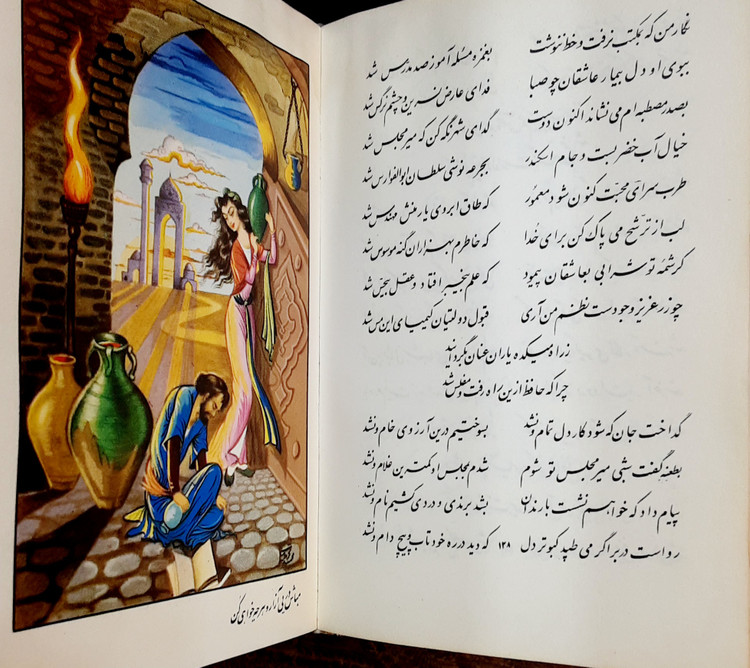 نگار من که بمکتب نرفت و خط ننوشت بغمزه مسئله آموز صد مدرس شد
ببوی او دل بیمار عاشقان چو صبا فدای عارض نسرین و چشم نرگس شد
بصدر مصطبه ام می نشاند اکنون دوست گدای شهر نگه کن که میر مجلس شد
خیال آب خضر بست و جام اسکندر بجرعه نوشی سلطان ابوالفوارس شد
طرب سرای محبت کنون شود معمور که طاق ابروی یار منش مهندس شد
لب از ترشح می پاک کن برای خدا که خاطرم بهزاران گنه موسوس شد
کرشمه تو شرابی بعاشقان پیمود که علم بیخبر افتاد و عقل بیحس شد
چو زر عزیز وجودست نظم من آری قبول دولتیان کیمیای این مس شد
ز راه میکده یاران عنان بگردانید
چرا که حافظ ازین راه رفت و مفلس شد
گداخت جان که شود کار دل تمام و نشد بسوختیم درین آرزوی خام و نشد
بطعنه گفت شبی میر مجلس تو شوم شدم بمجلس او کمترین غلام و نشد
پیام داد که خواهم نشست با رندان بشد برندی و دردی کشیم نام و نشد
رواست در بر اگر می طپد کبوتر دل ۱۲۸ که دید در ره خود تاب و پیچ دام و نشد
مباش در پی آزار و هر چه خواهی کن